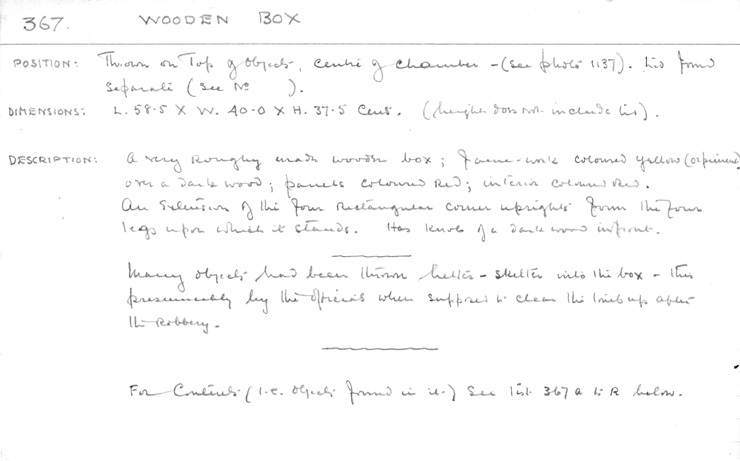 367. WOODEN BOX
POSITION: Thrown on Top of objects, centre of chamber - (see photo 1137). Lid found
separate (see No ).
DIMENSIONS: L. 58.5 X W. 40.0 X H. 37.5 Cent. (height does not include lid).
DESCRIPTION: A very Roughly made wooden box; frame-work coloured yellow (orpiment)
over a dark wood; panels coloured Red; interior coloured Red.
An Extension of the four Rectangular corner uprights form the four
legs upon which it stands. Has Knob of a dark wood in front.
Many objects had been thrown helter-skelter into the box - this
presumably by the officials when supposed to clean the tomb up after
the Robbery.
For Contents (i.e. objects found in it.) See list 367 a to R below.